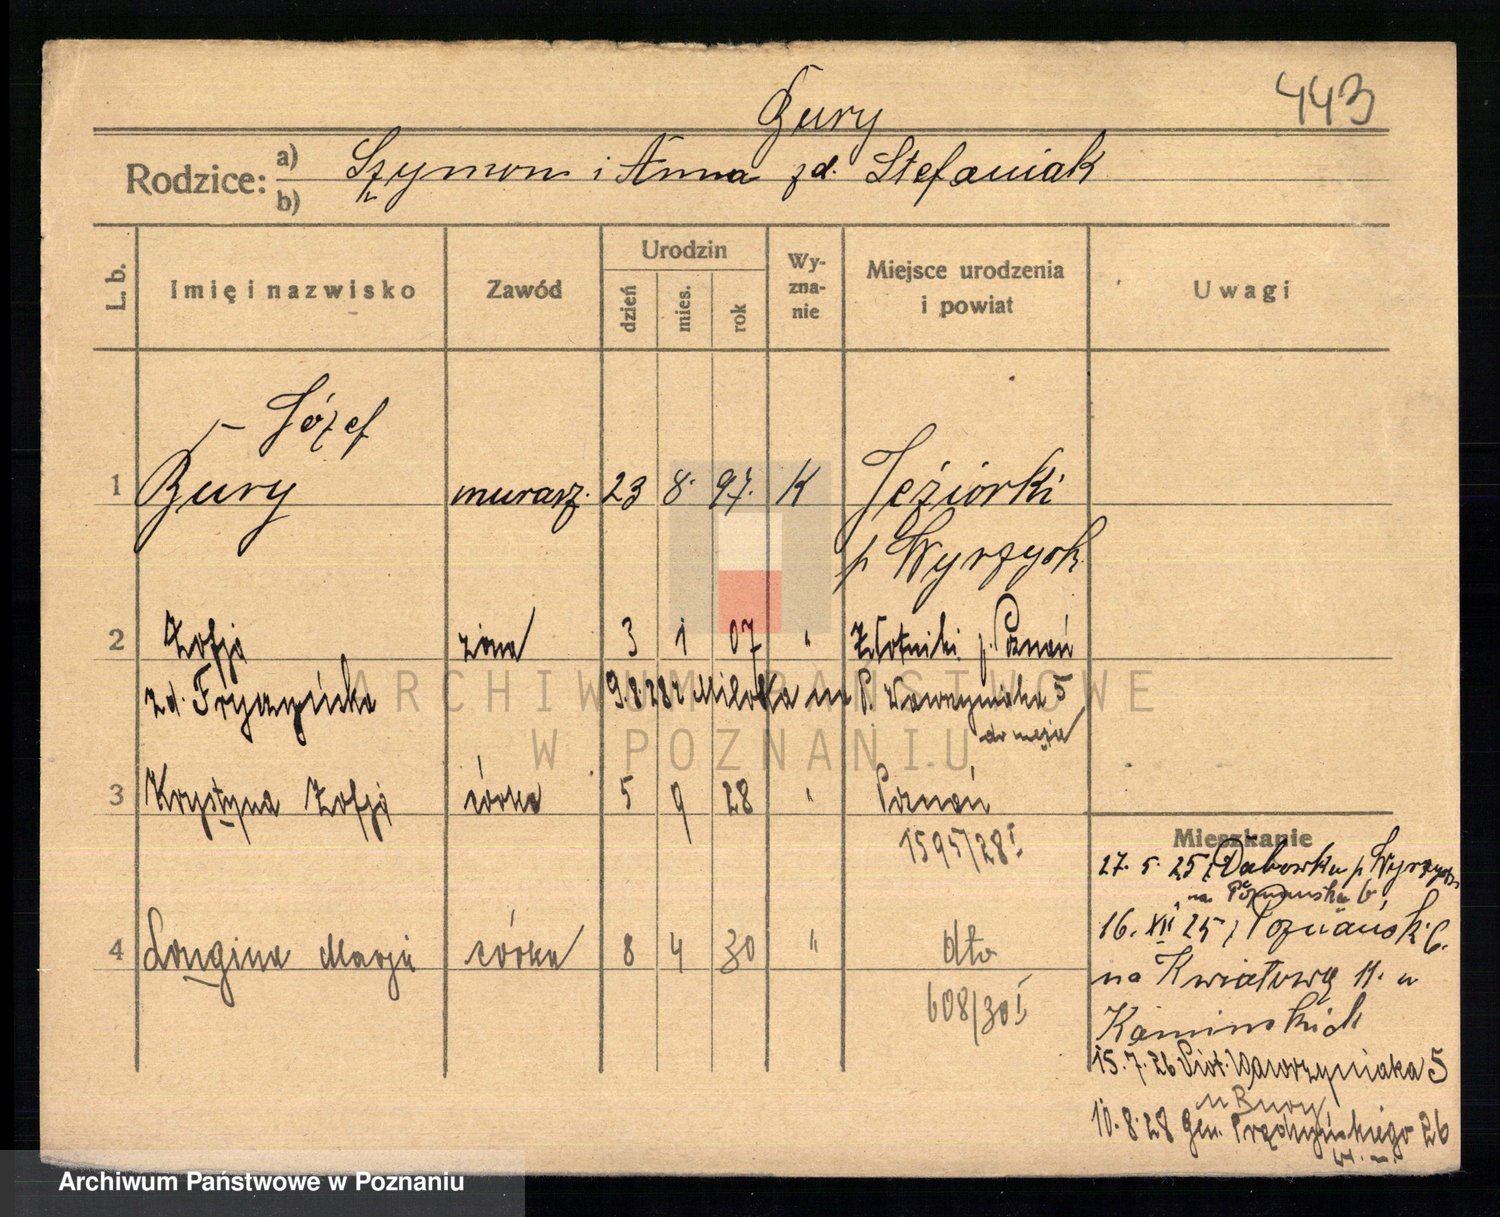 443
Bury
Rodzice: a) b) Szymon i Anna zd. Stefaniak
L. b.
Imię i nazwisko
Zawód
Urodzin
dzień
mies.
rok
Wy-
zna-
nie
Miejsce urodzenia
i powiat
Uwagi
Józef
1 Bury murarz. 23 8. 97. K Jeziorki
p Wyrzysk
2 Zofja żona 3 1 07 " Złotniki p. Poznań
zd. 9.8.28 z m P. Wawrzyniaka 5
do męża
3 Krystyna Zofja córka 5 9 28 " Poznań
1595/28 I
4 Longina Marja córka 8 4 30 " dto
608/30 I
Mieszkanie
27. 5. 25 z p Wyrzysk
na Poznańska 6
16. XII 25 z Poznański 6.
na Kwiatową 11. u
Kamińskich
15.7.26 Piotr. Wawrzyniaka 5
u Bury
10.8.28 Gen. Prądzyńskiego 26
w. m.
ARCHIWUM PAŃSTWOWE
W POZNANIU
Archiwum Państwowe w Poznaniu